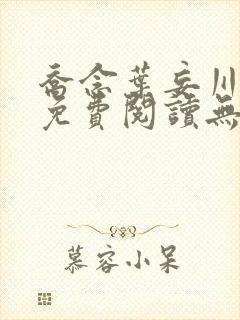 喬念葉妄川
免費閱讀無
慕容小呆